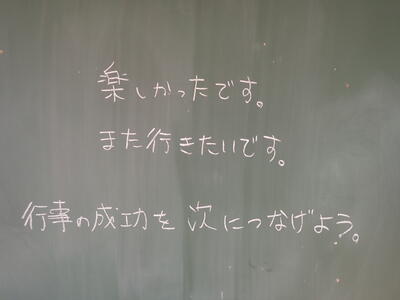 楽しかったです。
また行きたいです。
行事の成功を次につなげよう。